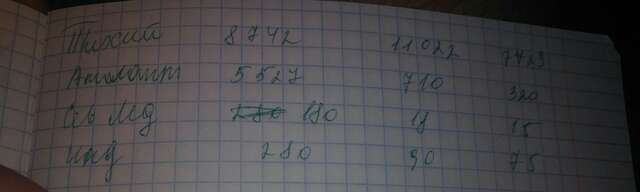 Тихий 8742 11022 7423
5527 710 320
280 180 18 15
инд 280 90 75